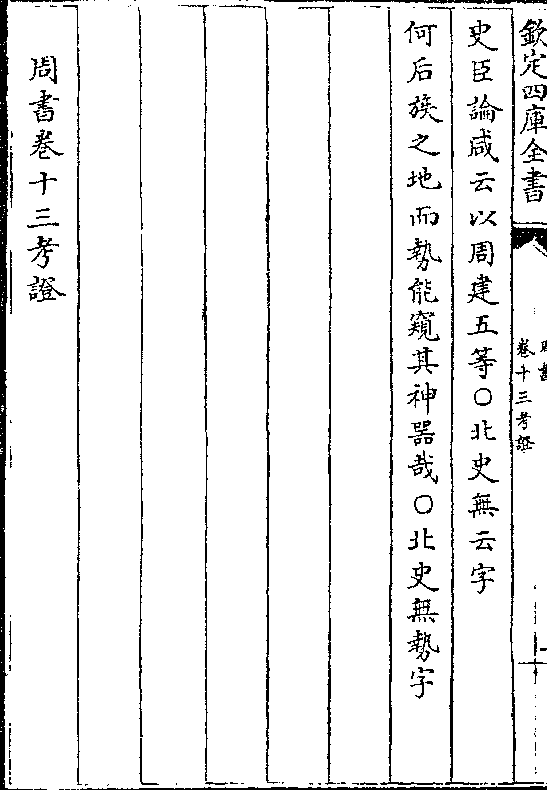 欽定四庫全書
周書
卷十三考證
史臣論咸云以周建五等○北史無云字
何后族之地而勢能窺其神器哉○北史無勢字
周書卷十三考證